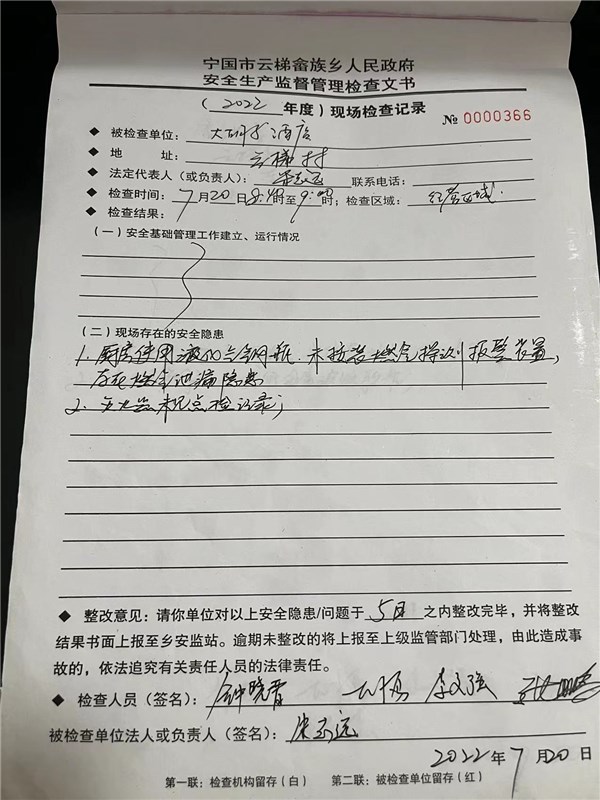 宁国市云梯畲族乡人民政府
安全生产监督管理检查文书
（2022 年度）现场检查记录
№ 0000366
◆ 被检查单位：大 酒店
◆ 地 址：云梯村
◆ 法定代表人（或负责人）： 联系电话：
◆ 检查时间：7月20日8:40时至9:00时；检查区域：经营区域.
◆ 检查结果：
（一）安全基础管理工作建立、运行情况
（二）现场存在的安全隐患
1. 厨房使用液化气钢瓶，未按装燃气探测报警装置，
存在燃气泄漏隐患
2. 灭火器未见点检记录；
◆ 整改意见：请你单位对以上安全隐患/问题于 5日 之内整改完毕，并将整改
结果书面上报至乡安监站。逾期未整改的将上报至上级监管部门处理，由此造成事
故的，依法追究有关责任人员的法律责任。
◆ 检查人员（签名）：钟晓晋 李文强
被检查单位法人或负责人（签名）：
2022年7月20日
第一联：检查机构留存（白） 第二联：被检查单位留存（红）